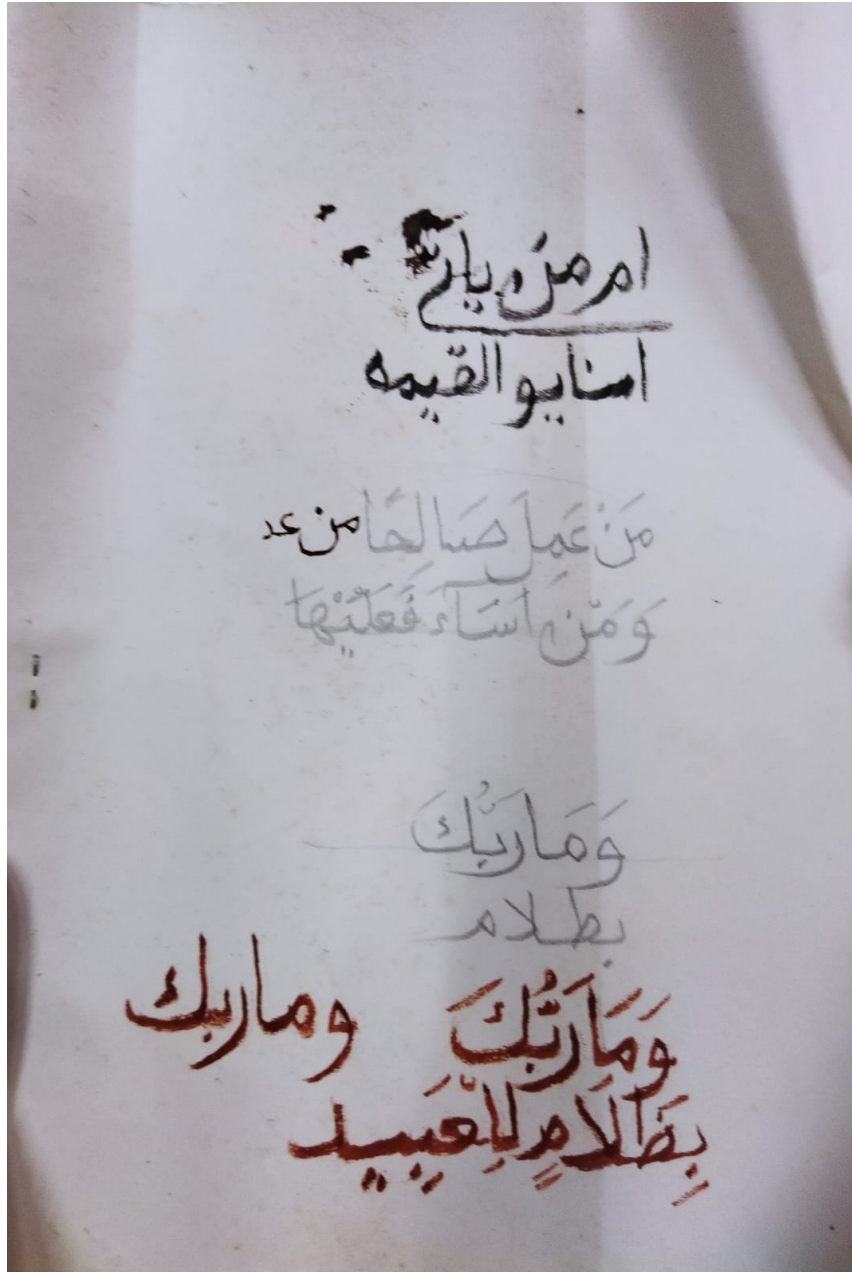 ام من ياتي
امنا يو القيمه
مَنْ عَمِلَ صَالِحًا من عد
وَمَنْ اَسَآءَ فَعَلَيْهَا
وَمَا رَبُّكَ
بظلام
وَمَا رَبُّكَ وماربك
بِظَلَامٍ لِلْعَبِيد